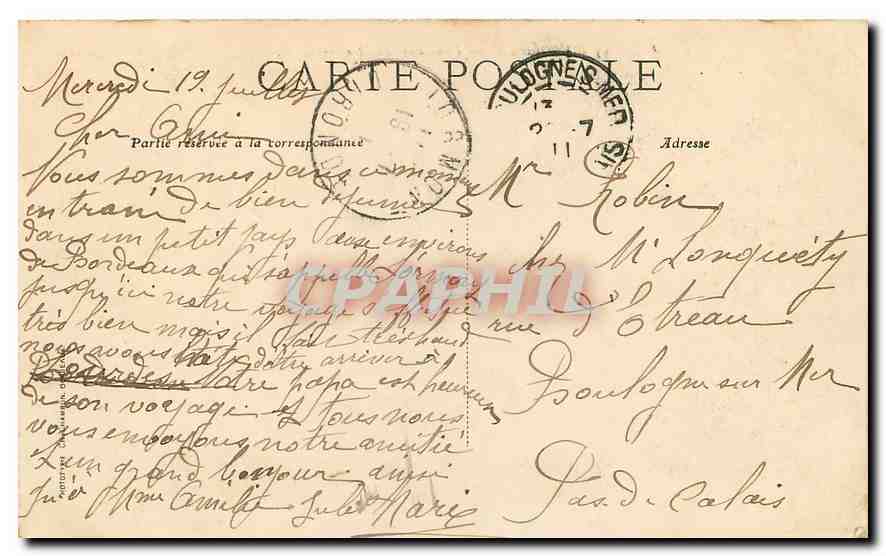 CARTE POSTALE
Partie réservée à la correspondance
Adresse
Mercredi 19 juillet
Cher Ami
Vous sommes dans ce moment
en train de bien déjeuner
dans un petit pays aux environs
de Bordeaux qui s'appelle Lormon
jusqu'ici notre voyage s'effectue
très bien mais il fait très chaud
nous avons hâte d'être arriver à
Lourdes Votre papa est heureux
de son voyage et tous nous
vous envoyons notre amitié
et un grand bonjour ainsi
qu'à Mme Amélie Jules Marie
Mr Robin
chez Mr Longuéty
rue d'Otréau
Boulogne sur Mer
Pas-de-Calais
BOULOGNE-S-MER
11
LORMONT
GIRONDE
CPAPHIL
PHOTOTYPIE